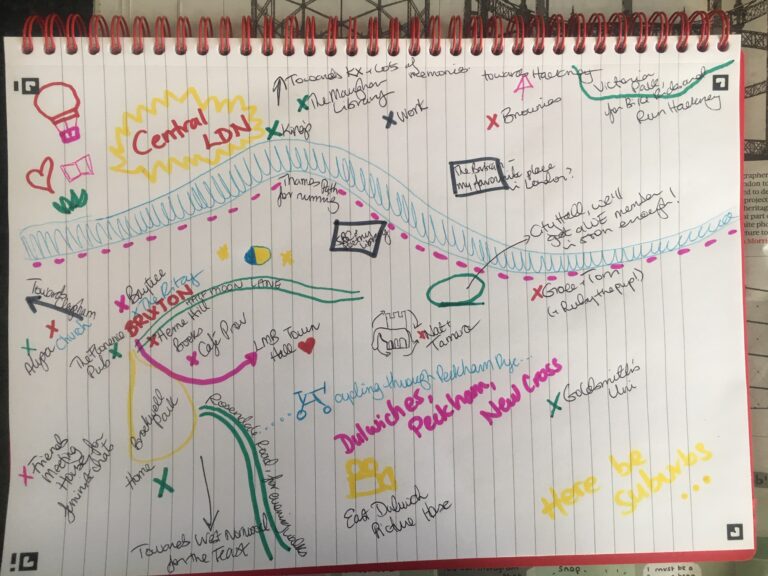 ↑ Towards KX + lots of memories
X The Maughan
Library
X King's
X Work
towards Hackney
X Brownies
Victoria
Park,
for bike rides and
Run Hackney
Central
LDN
Thames Path
for running
The Barbican
my favourite place
in London?
City Hall, we'll
get a WE member
in soon enough!
X Grace + Tom
(+ Ruby the pup!)
Towards Clapham
X
X Church
The Florence
Pub X
X
X The Ritzy
BRIXTON
HALF MOON LANE
X Herne Hill
Books
X Cafe Prov
LMB Town
Hall
X Nat +
Tamara
cycling through Peckham Rye...
Dulwiches,
Peckham,
New Cross
X Goldsmith's
Uni
Brockwell
Park
Rosendale Road, for evening walks
X Friends
Meeting
House for
feminist chats
Home X
Towards West Norwood
for the Feast
East Dulwich
Picture House
Here be
Suburbs
...